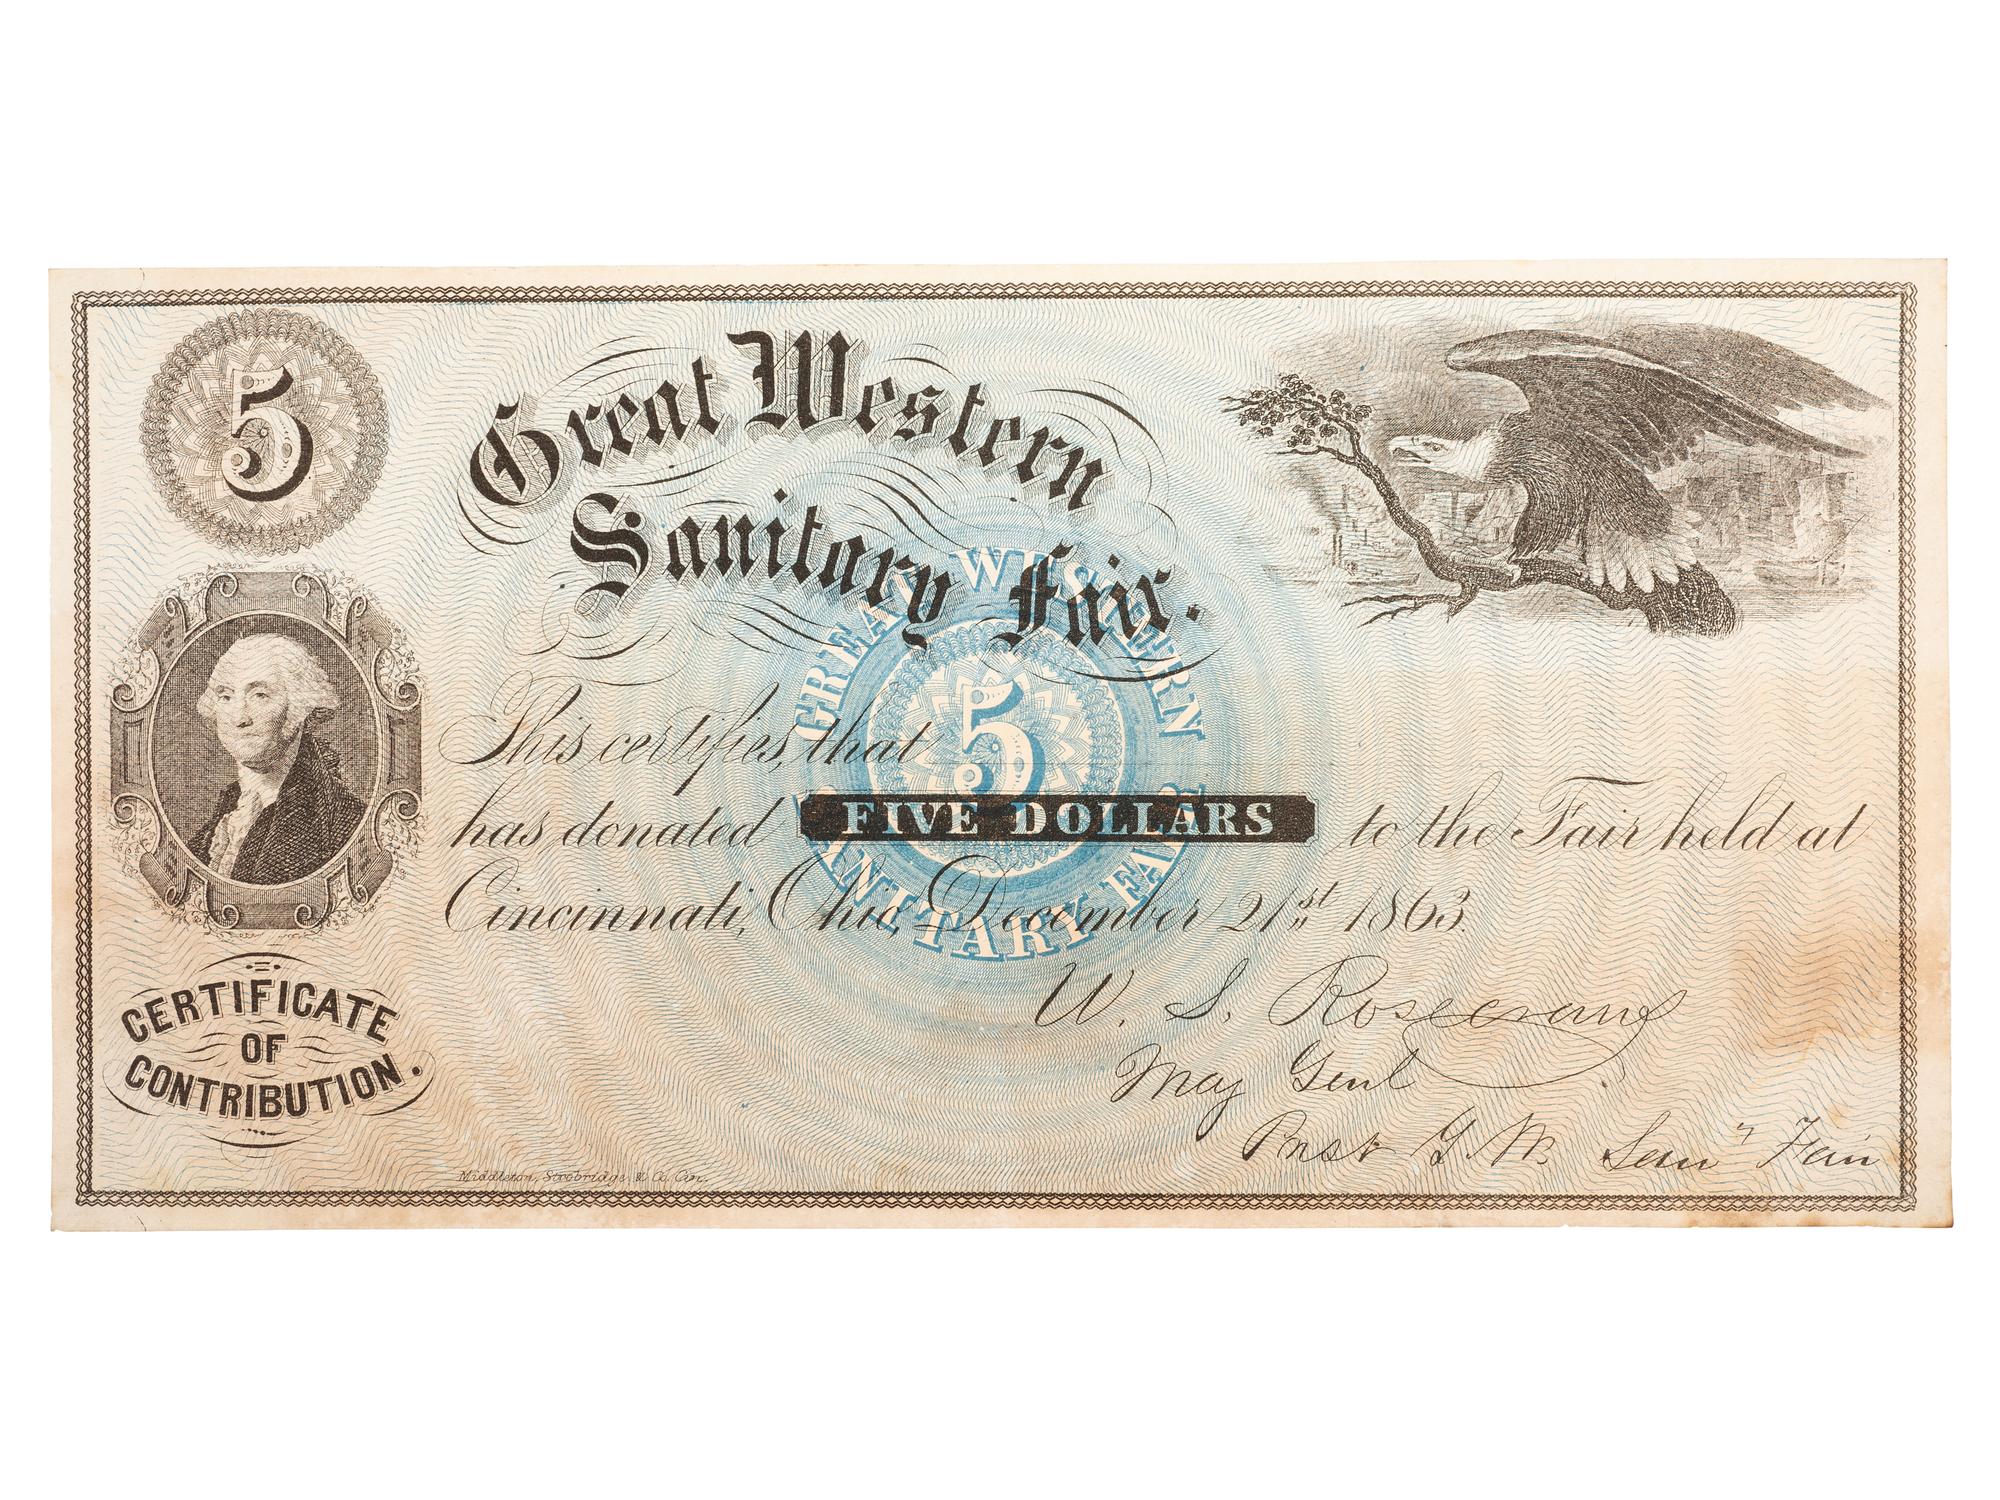 5
Great Western
Sanitary Fair.
GREAT WESTERN
5
SANITARY FAIR
This certifies, that
has donated FIVE DOLLARS to the Fair held at
Cincinnati, Ohio, December 21st 1863.
W. S. Rosecrans
Maj Genl
Prest G. W. San'y Fair
CERTIFICATE
OF
CONTRIBUTION.
Middleton, Strobridge & Co. Cin.